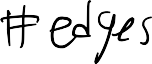 # edges